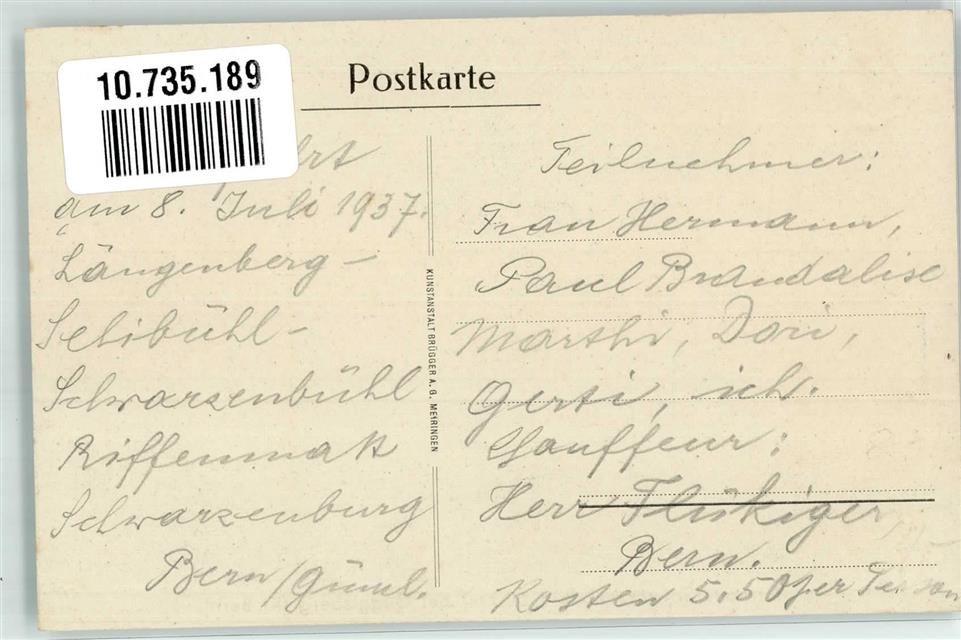 10.735.189
Postkarte
am 8. Juli 1937.
Längenberg-
Selibühl-
Schwarzenbühl
Riffenmatt
Schwarzenburg
Bern/Güml.
KUNSTANSTALT BRÜGGER A. G. MEIRINGEN
Teilnehmer:
Frau Hermann,
Paul Brandalise
Marthi, Dori,
Gerti, ich.
Chauffeur:
Herr Flükiger
Bern.
Kosten 5.50 per Person